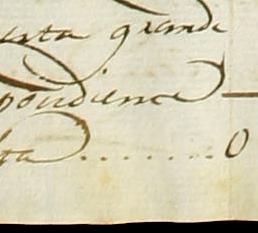 arta grande
pondience —
ta ........ 0